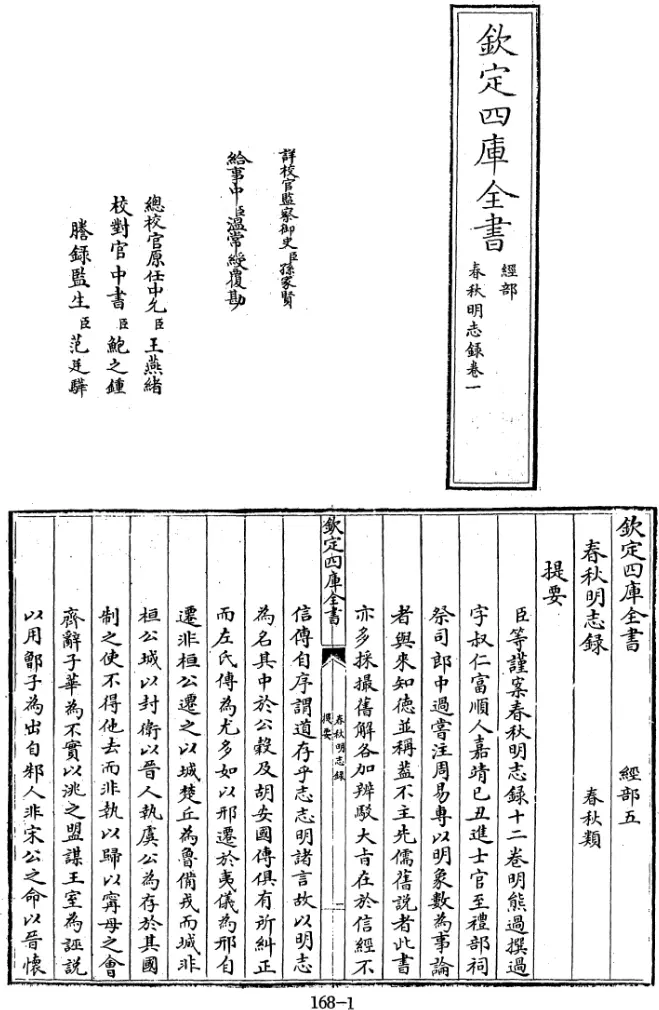 欽定四庫全書
經部
春秋明志録卷一
詳校官監察御史臣孫家賢
給事中臣溫常綬覆勘
總校官原任中允臣王燕緒
校對官中書臣鮑之鍾
謄録監生臣范廷驊
欽定四庫全書　經部五
春秋明志録　春秋類
提要
臣等謹案春秋明志録十二卷明熊過撰過
字叔仁富順人嘉靖己丑進士官至禮部祠
祭司郎中過嘗注周易專以明象數為事論
者與來知徳並稱蓋不主先儒舊説者此書
亦多採撮舊解各加辨駁大㫖在於信經不
欽定四庫全書
春秋明志録
提要
二
信傳自序謂道存乎志志明諸言故以明志
為名其中於公穀及胡安國傳俱有所糾正
而左氏傳為尤多如以邢遷於夷儀為邢自
遷非桓公遷之以城楚丘為魯備戎而城非
桓公城以封衛以晉人執虞公為存於其國
制之使不得他去而非執以歸以甯母之會
齊辭子華為不實以洮之盟謀王室為誣説
以用鄫子為出自邾人非宋公之命以晉懷
168-1